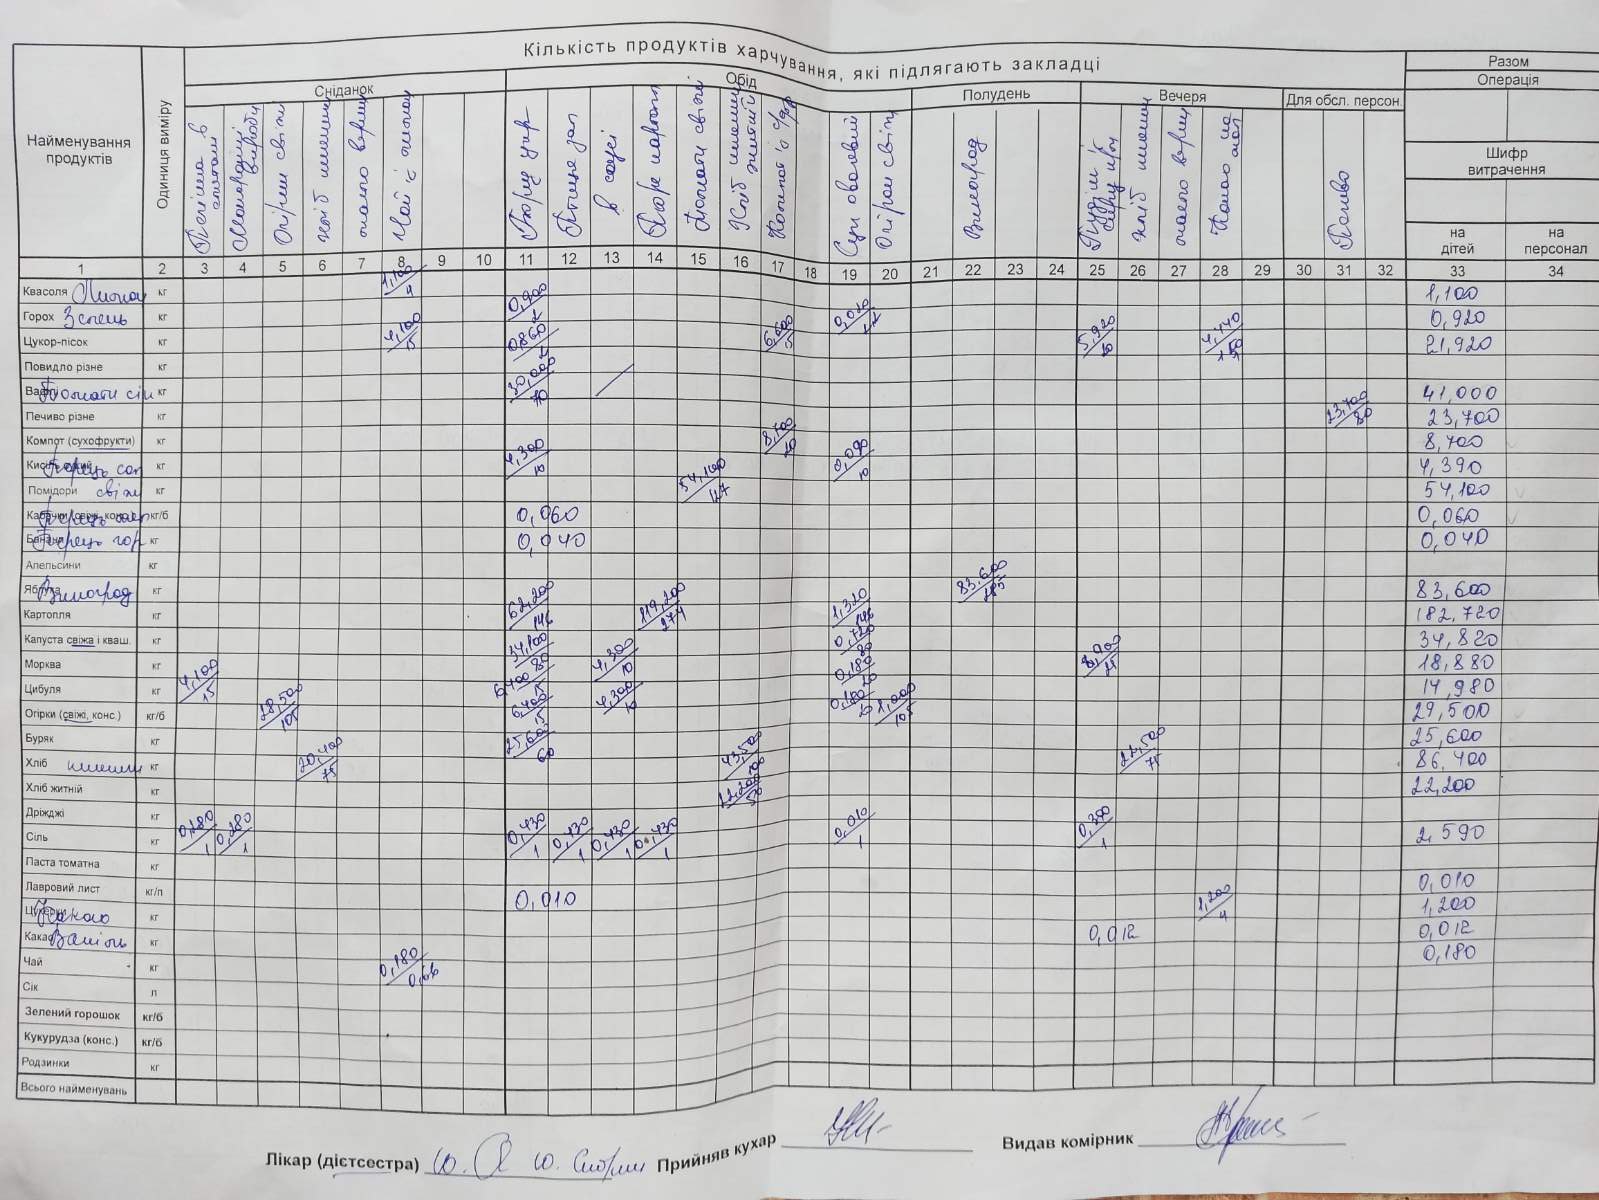 Кількість продуктів харчування, які підлягають закладці
Разом
Операція
Шифр витрачення
на дітей
на персонал
Найменування продуктів
Одиниця виміру
Сніданок
Обід
Полудень
Вечеря
Для обсл. персон.
Макаронні вироби
Огірки свіжі
хліб пшен
масло верш
Чай з лимон
Борщ укр
Птиця зап
в соусі
Пюре картоп
Томати свіжі
Хліб пшен житній
Компот із с/фр
Суп овочевий
Огірки свіж
Виноград
хліб пшен
масло верш
Какао на мол
Печиво
1 2 3 4 5 6 7 8 9 10 11 12 13 14 15 16 17 18 19 20 21 22 23 24 25 26 27 28 29 30 31 32 33 34
Квасоля Лимон кг 1,100/4 1,100
Горох Зелень кг 0,900/2 0,020/22 0,920
Цукор-пісок кг 4,100/15 0,860/2 6,600/5 5,920/20 4,440/150 21,920
Повидло різне кг
Вафлі Томати сік кг 30,000/70 41,000
Печиво різне кг 23,700/80 23,700
Компот (сухофрукти) кг 8,700/20 8,700
Перець сол кг 4,300/10 0,090/10 4,390
Помідори свіжі кг 54,100/127 54,100
Кабачки (свіжі, конс.) Перець кг/б 0,060 0,060
Банани Перець гор кг 0,040 0,040
Апельсини кг
Яблука Виноград кг 83,600/285 83,600
Картопля кг 62,200/146 119,200/274 1,320/146 182,720
Капуста свіжа і кваш. кг 34,100/80 0,720/80 34,820
Морква кг 6,400/15 4,300/10 0,180/20 8,000 18,880
Цибуля кг 4,100/15 6,400/15 4,300/10 0,180/20 14,980
Огірки (свіжі, конс.) кг/б 28,500/105 1,000/105 29,500
Буряк кг 25,600/60 25,600
Хліб пшен кг 20,400/75 43,500/100 22,500/75 86,400
Хліб житній кг 22,200/50 22,200
Дріжджі кг
Сіль кг 0,280/1 0,280/1 0,430/1 0,430/1 0,430/1 0,430/1 0,010/1 0,300/1 2,590
Паста томатна кг
Лавровий лист кг/п 0,010 0,010
Цукерки Какао кг 1,200/4 1,200
Какао Ваніль кг 0,012 0,012
Чай кг 0,180/0,66 0,180
Сік л
Зелений горошок кг/б
Кукурудза (конс.) кг/б
Родзинки кг
Всього найменувань
Лікар (дієтсестра)
Прийняв кухар
Видав комірник